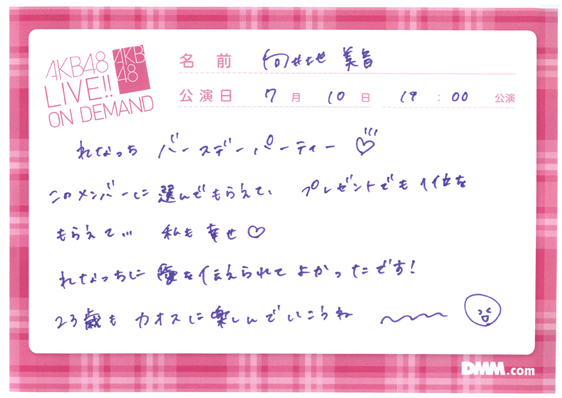 AKB48
LIVE!!
ON DEMAND
AKB
48
名前 向井地 美音
公演日 7月 10日 19:00 公演
れなっち バースデーパーティー♡
このメンバーに選んでもらえて、 プレゼントでも1位を
もらえて… 私も幸せ♡
れなっちに愛を伝えられてよかったです!
23歳も カオスに楽しんでいこうね
DMM.com